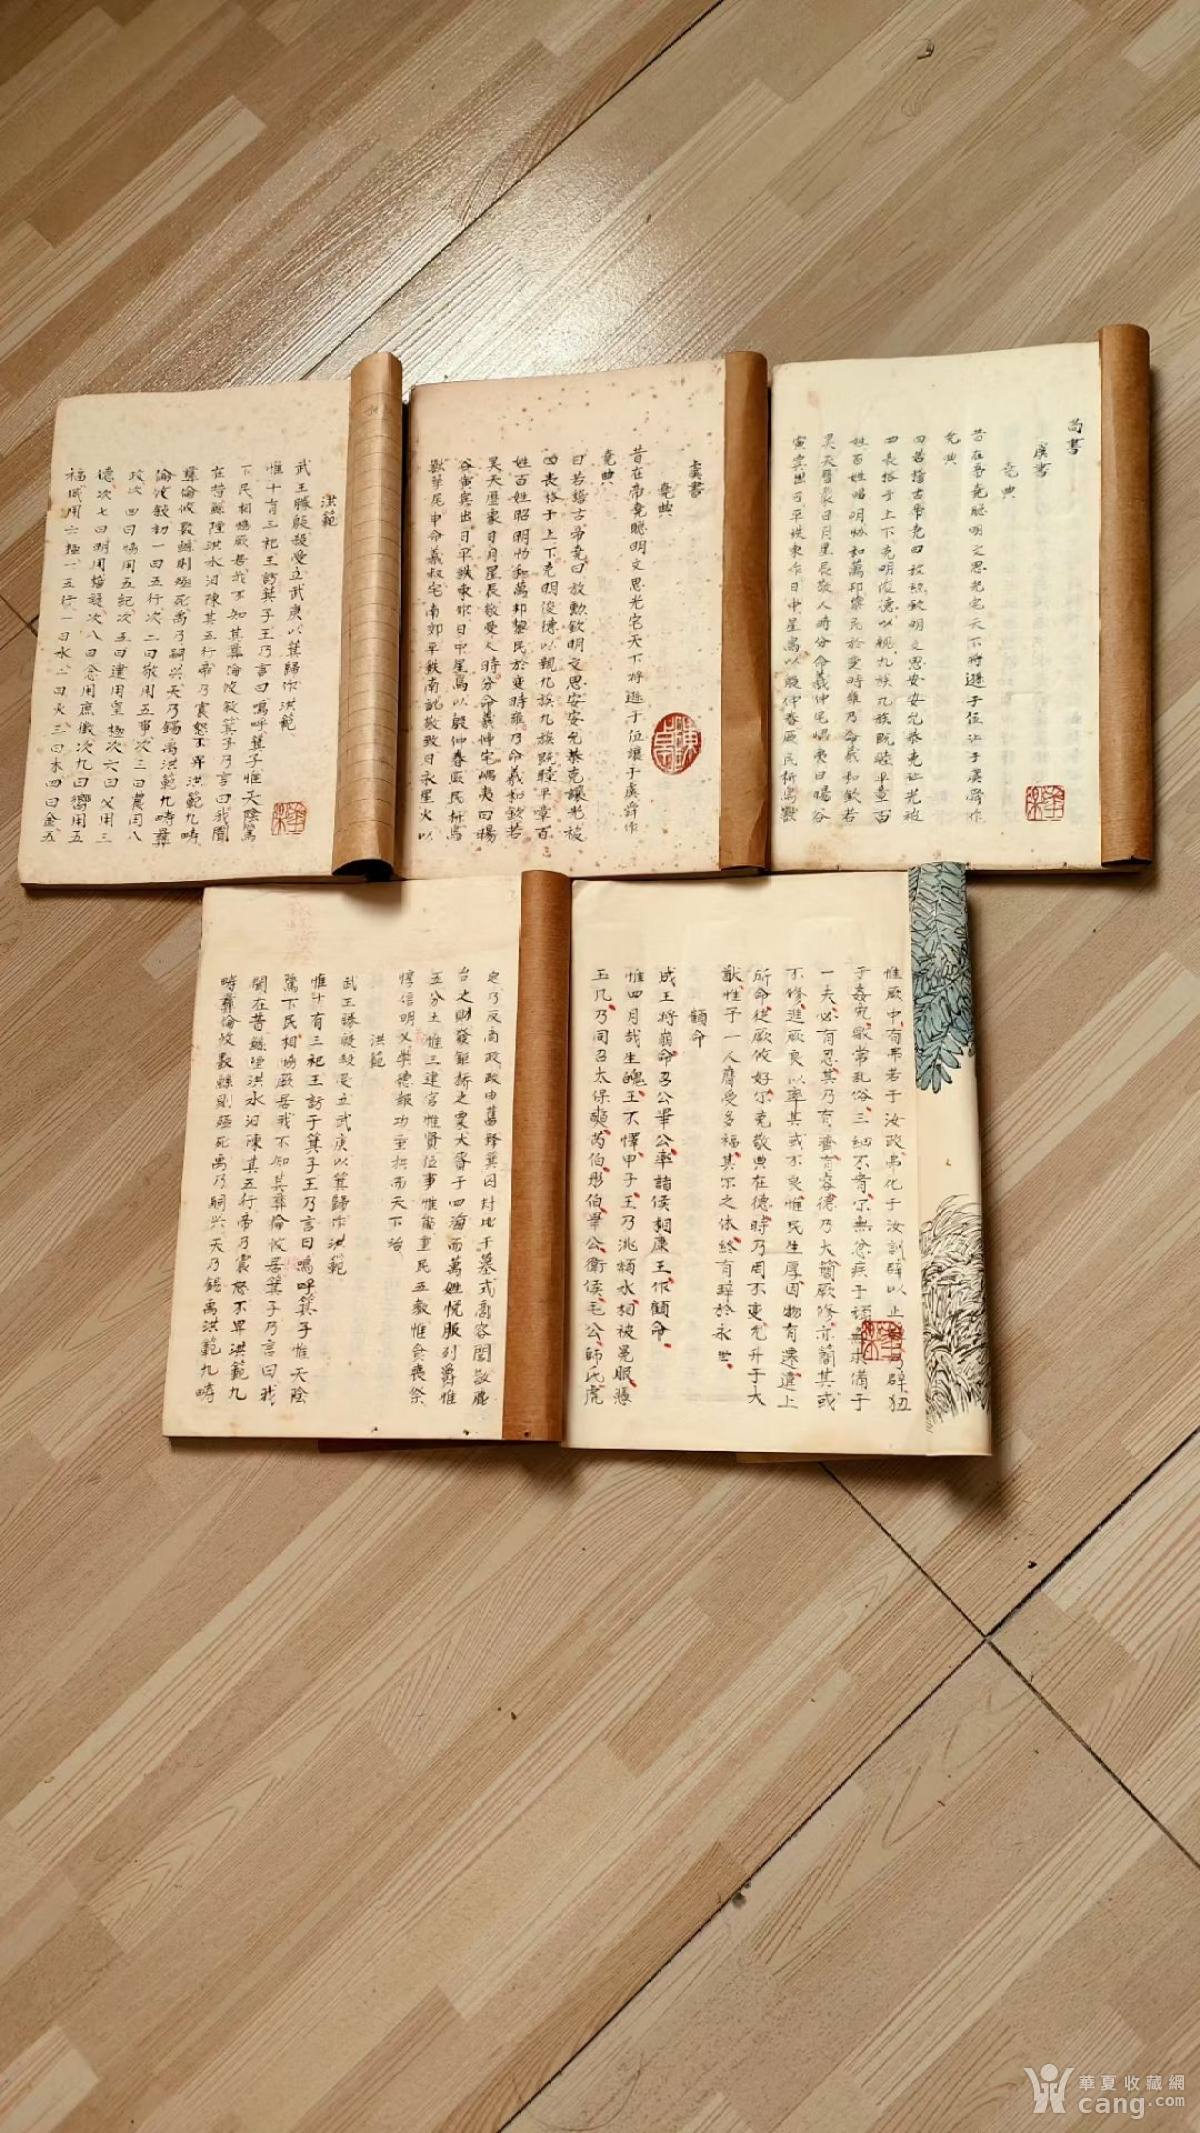 尚書
虞書
堯典
昔在帝堯聰明文思光宅天下將遜于位让于虞舜作
堯典
曰若稽古帝堯曰放勳欽明文思安安允恭克让光被
四表格于上下克明俊德以親九族九族既睦平章百
姓百姓昭明協和萬邦黎民於變時雍乃命羲和欽若
昊天曆象日月星辰敬人時分命羲仲宅嵎夷曰暘谷
寅賓出日平秩東作日中星鳥以殷仲春厥民析鳥獸
虞書
堯典
昔在帝堯聰明文思光宅天下將遜于位讓于虞舜作
堯典
曰若稽古帝堯曰放勳欽明文思安安允恭克讓光被
四表格于上下克明俊德以親九族九族既睦平章百
姓百姓昭明協和萬邦黎民於變時雍乃命羲和欽若
昊天曆象日月星辰敬受人時分命羲仲宅嵎夷曰暘
谷寅賓出日平秩東作日中星鳥以殷仲春厥民析鳥
獸孳尾申命羲叔宅南郊平秩南訛敬致日永星火以
洪範
武王勝殷殺受立武庚以箕歸作洪範
惟十有三祀王訪箕子王乃言曰嗚呼箕子惟天陰騭
下民相協厥居我不知其彝倫攸敘箕子乃言曰我聞
在昔鯀陻洪水汩陳其五行帝乃震怒不畀洪範九疇
彝倫攸斁鯀則殛死禹乃嗣興天乃錫禹洪範九疇彝
倫攸敘初一曰五行次二曰敬用五事次三曰農用八
政次四曰協用五紀次五曰建用皇極次六曰乂用三
德次七曰明用稽疑次八曰念用庶徵次九曰嚮用五
福威用六極一五行一曰水二曰火三曰木四曰金五
惟厥中有弗若于汝政弗化于汝訓辟以止辟乃辟狃
于姦宄敗常乱俗三細不宥尔無忿疾于頑無求備于
一夫必有忍其乃有濟有容德乃大簡厥修亦簡其或
不修進厥良以率其或不良惟民生厚因物有遷違上
所命從厥攸好尔克敬典在德時乃罔不变允升于大
猷惟予一人膺受多福其尔之休終有辞於永世
顧命
成王將崩命召公畢公率諸侯相康王作顧命
惟四月哉生魄王不懌甲子王乃洮頮水相被冕服憑
玉几乃同召太保奭芮伯彤伯畢公衛侯毛公師氏虎
史乃反商政政由舊釋箕囚封比于墓式商容閭散鹿
台之財發鉅橋之粟大賚于四海而萬姓悅服列爵惟
五分土惟三建官惟賢位事惟能重民五教惟食喪祭
惇信明义崇德報功垂拱而天下治
洪範
武王勝殷殺受立武庚以箕歸作洪範
惟十有三祀王訪于箕子王乃言曰嗚呼箕子惟天陰
騭下民相協厥居我不知其彝倫攸居箕子乃言曰我
聞在昔鯀陻洪水汩陳其五行帝乃震怒不畀洪範九
疇彝倫攸斁鯀則殛死禹乃嗣兴天乃錫禹洪範九疇
華夏收藏網
cang.com